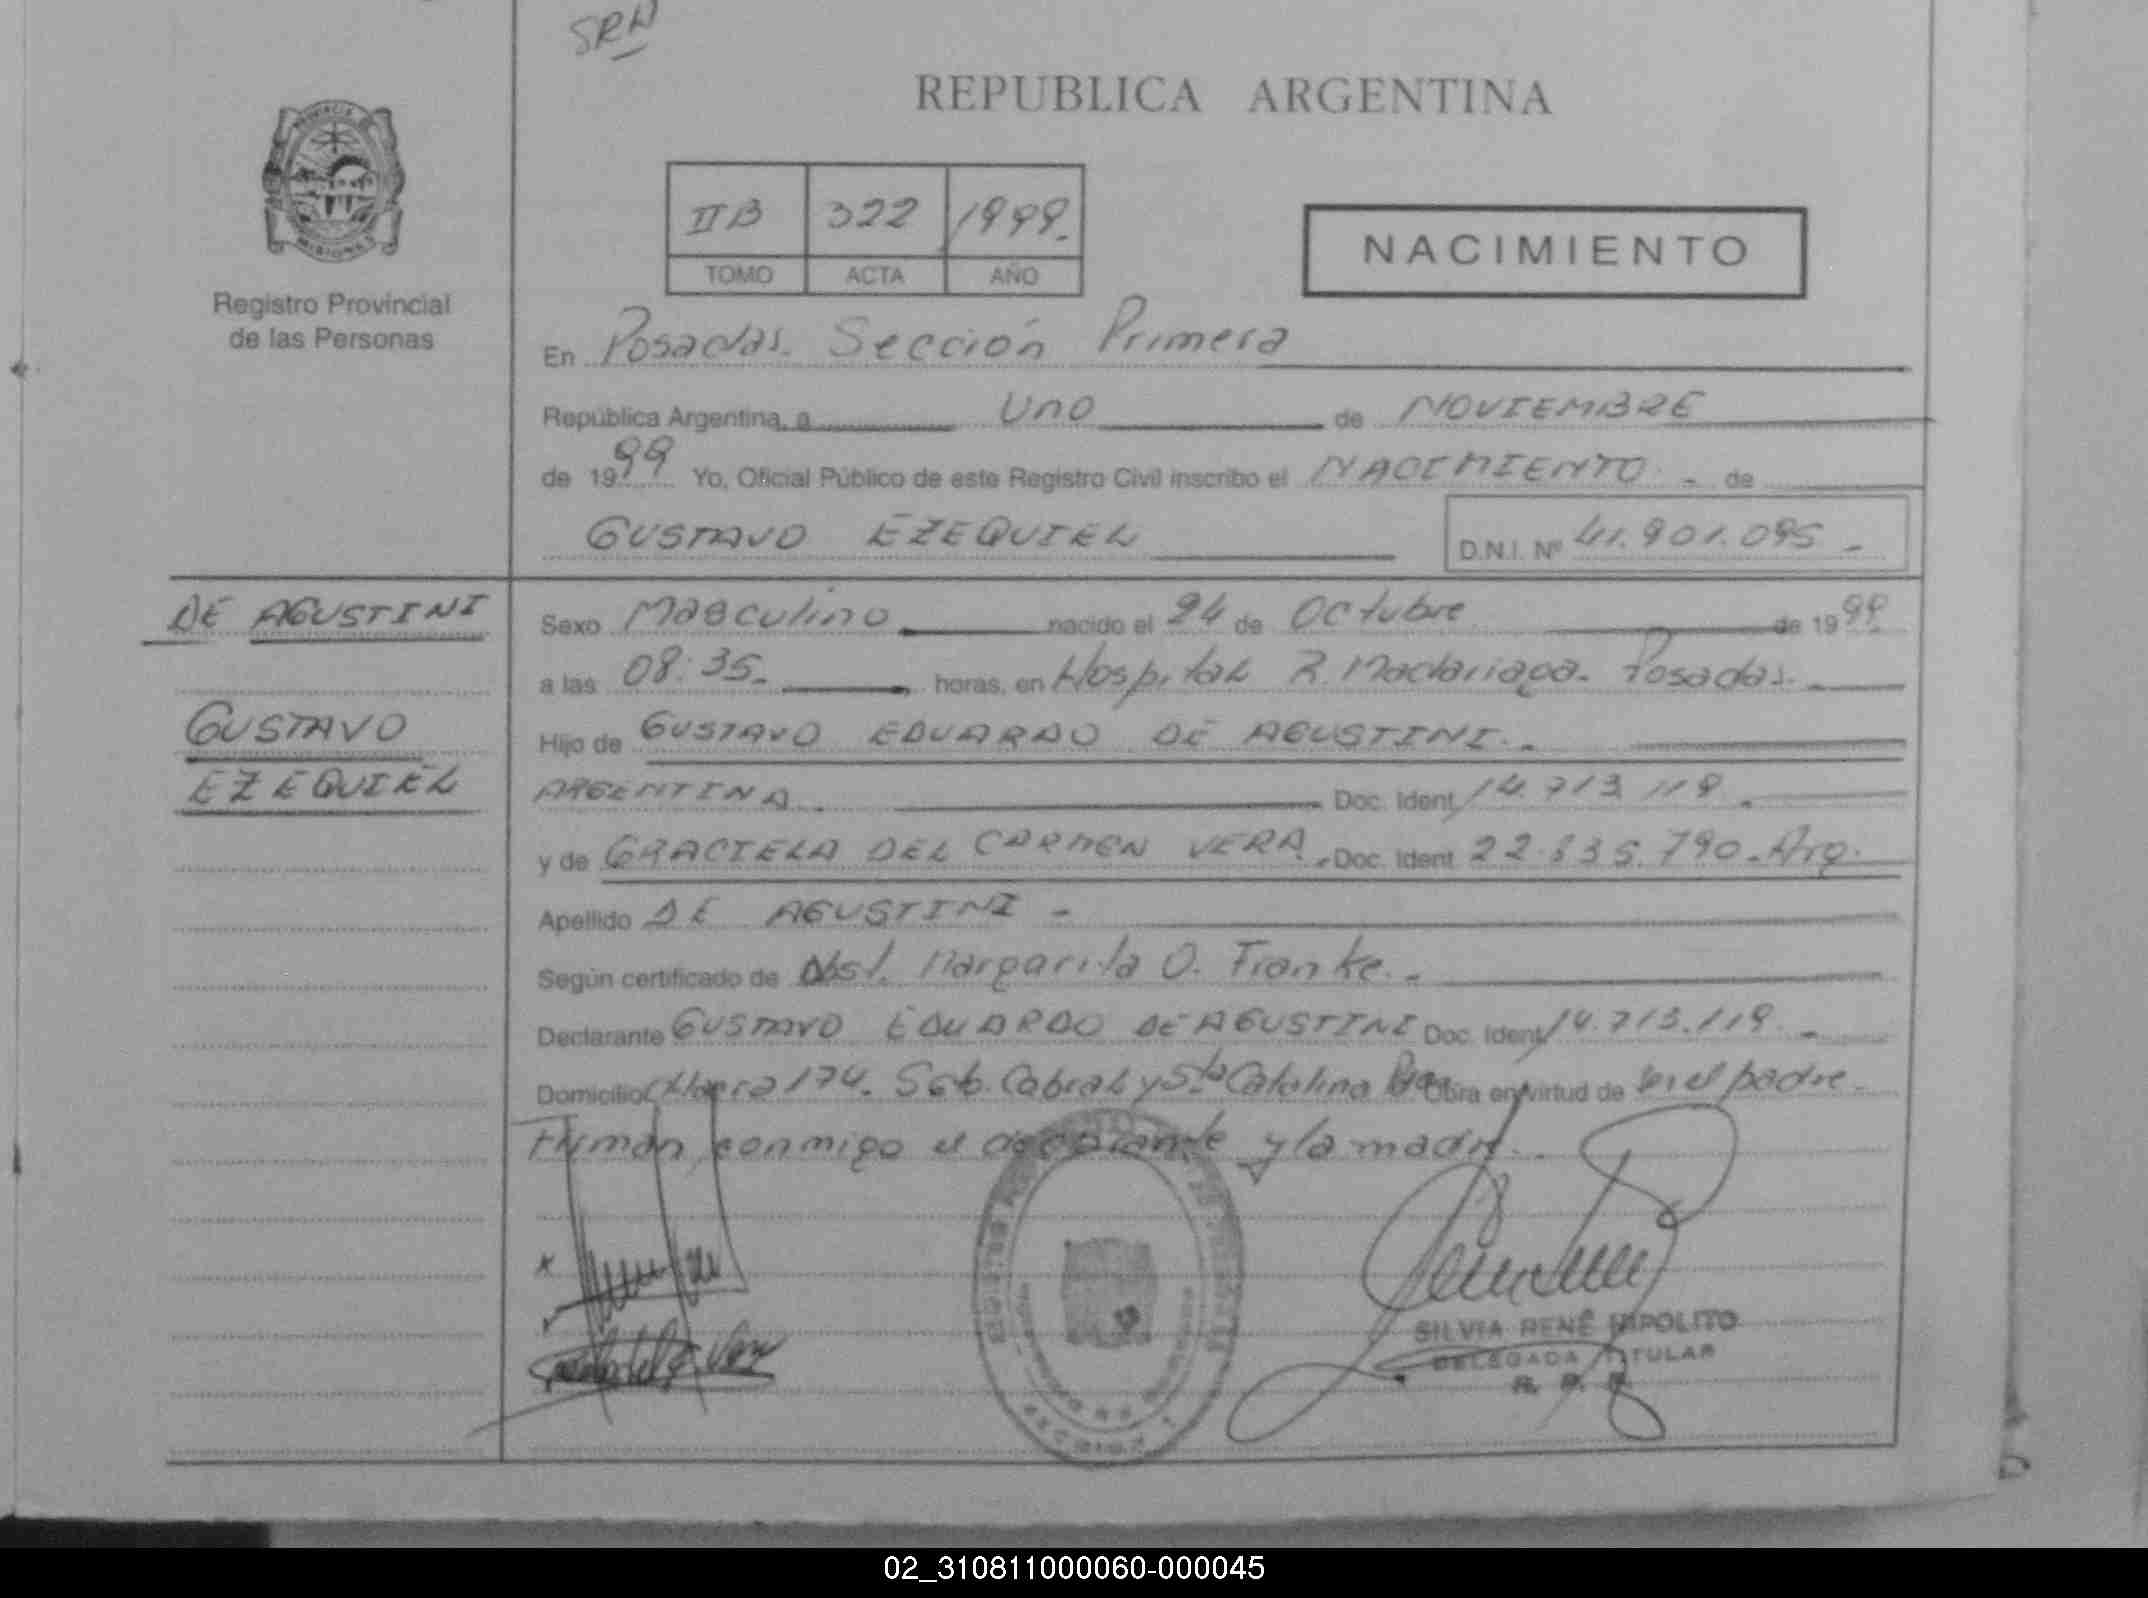 SRH
REPUBLICA ARGENTINA
PROVINCIA
MISIONES
Registro Provincial
de las Personas
IIB 322 1999.
TOMO ACTA AÑO
NACIMIENTO
En Posadas. Sección Primera
República Argentina, a Uno de NOVIEMBRE
de 1999 Yo, Oficial Público de este Registro Civil inscribo el NACIMIENTO - de
GUSTAVO EZEQUIEL D.N.I. Nº 41.901.095 -
DE AGUSTINI
GUSTAVO
EZEQUIEL
Sexo Masculino nacido el 24 de Octubre de 1999.
a las 08:35. horas, en Hospital R. Madariaga. Posadas.
Hijo de GUSTAVO EDUARDO DE AGUSTINI.
ARGENTINA. Doc. Ident. 14.713.119.
y de GRACIELA DEL CARMEN VERA. Doc. Ident. 22.835.790. Arg.
Apellido DE AGUSTINI -
Según certificado de Obst. Margarita O. Franke.
Declarante GUSTAVO EDUARDO DE AGUSTINI Doc. Ident. 14.713.119.
Domicilio Chacra 174. Sgto. Cabral y Sta Catalina Obra en virtud de padre
Firman conmigo el declarante y la madre.
SILVIA RENÉ HIPOLITO
DELEGADA TITULAR
R. P. P.
02_310811000060-000045